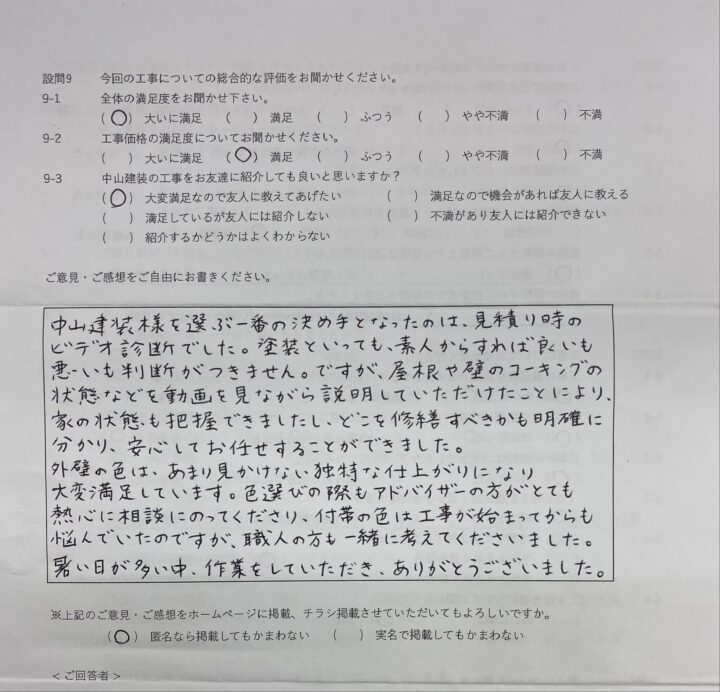 設問9 今回の工事についての総合的な評価をお聞かせください。
9-1 全体の満足度をお聞かせ下さい。
(○) 大いに満足 ( ) 満足 ( ) ふつう ( ) やや不満 ( ) 不満
9-2 工事価格の満足度についてお聞かせください。
( ) 大いに満足 (○) 満足 ( ) ふつう ( ) やや不満 ( ) 不満
9-3 中山建装の工事をお友達に紹介しても良いと思いますか?
(○) 大変満足なので友人に教えてあげたい ( ) 満足なので機会があれば友人に教える
( ) 満足しているが友人には紹介しない ( ) 不満があり友人には紹介できない
( ) 紹介するかどうかはよくわからない
ご意見・ご感想をご自由にお書きください。
中山建装様を選ぶ一番の決め手となったのは、見積り時の
ビデオ診断でした。塗装といっても、素人からすれば良いも
悪いも判断がつきません。ですが、屋根や壁のコーキングの
状態などを動画を見ながら説明していただけたことにより、
家の状態も把握できましたし、どこを修繕すべきかも明確に
分かり、安心してお任せすることができました。
外壁の色は、あまり見かけない独特な仕上がりになり
大変満足しています。色選びの際もアドバイザーの方がとても
熱心に相談にのってくださり、付帯の色は工事が始まってからも
悩んでいたのですが、職人の方も一緒に考えてくださいました。
暑い日が多い中、作業をしていただき、ありがとうございました。
※上記のご意見・ご感想をホームページに掲載、チラシ掲載させていただいてもよろしいですか。
(○) 匿名なら掲載してもかまわない ( ) 実名で掲載してもかまわない
<ご回答者>